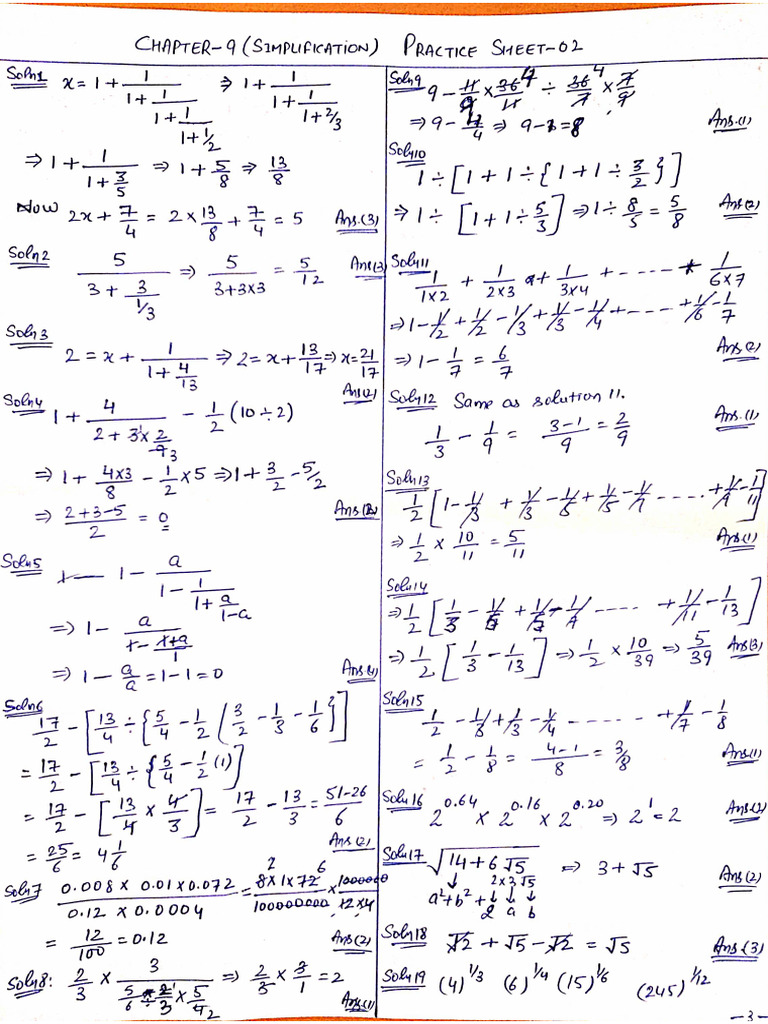 CHAPTER-9 (SIMPLIFICATION) PRACTICE SHEET-02
Soln1 x = 1 + 1/(1 + 1/(1 + 1/(1 + 1/2))) ⇒ 1 + 1/(1 + 1/(1 + 2/3))
⇒ 1 + 1/(1 + 3/5) ⇒ 1 + 5/8 ⇒ 13/8
Now 2x + 7/4 = 2 × 13/8 + 7/4 = 5 Ans.(3)
Soln2 5/(3 + 3/(1/3)) ⇒ 5/(3+3×3) = 5/12 Ans(3)
Soln3
2 = x + 1/(1 + 4/13) ⇒ 2 = x + 13/17 ⇒ x = 21/17
Ans(2)
Soln4 1 + 4/(2 + 3 × 2/9) - 1/2 (10 ÷ 2)
⇒ 1 + 4×3/8 - 1/2 × 5 ⇒ 1 + 3/2 - 5/2
⇒ (2+3-5)/2 = 0
Soln5 1 - a/(1 - 1/(1 + a/(1-a)))
⇒ 1 - a/(1 - (1-a)/1)
⇒ 1 - a/a = 1 - 1 = 0
Soln6
17/2 - [13/4 ÷ {5/4 - 1/2 (3/2 - 1/3 - 1/6}]
= 17/2 - [13/4 ÷ {5/4 - 1/2 (1)}]
= 17/2 - [13/4 × 4/3] = 17/2 - 13/3 = (51-26)/6
= 25/6 = 4 1/6 Ans(2)
Soln7 (0.008 × 0.01 × 0.072)/(0.12 × 0.0004) = (8×1×72)/100000000 × 1000000/(12×4)
= 12/100 = 0.12 Ans(2)
Soln8: 2/3 × 3/(5/6 ÷ 2/3 × 5/2) ⇒ 2/3 × 3/1 = 2
Ans(1)
Soln9 9 - 11/9 × 36/11 ÷ 36/7 × 7/9
Ans(1)
Soln10
1 ÷ [1 + 1 ÷ {1 + 1 ÷ 3/2}]
⇒ 1 ÷ [1 + 1 ÷ 5/3] ⇒ 1 ÷ 8/5 = 5/8 Ans(2)
Soln11
1/(1×2) + 1/(2×3) + 1/(3×4) + ----- + 1/(6×7)
⇒ 1 - 1/2 + 1/2 - 1/3 + 1/3 - 1/4 + ---- + 1/6 - 1/7
⇒ 1 - 1/7 = 6/7 Ans(2)
Soln12 Same as solution 11.
1/3 - 1/9 = (3-1)/9 = 2/9 Ans(1)
Soln13
1/2 [1 - 1/3 + 1/3 - 1/5 + 1/5 - 1/7 ---- + 1/9 - 1/11]
⇒ 1/2 × 10/11 = 5/11 Ans(1)
Soln14
⇒ 1/2 [1/3 - 1/5 + 1/5 - 1/7 ---- + 1/11 - 1/13]
⇒ 1/2 [1/3 - 1/13] ⇒ 1/2 × 10/39 ⇒ 5/39 Ans(3)
Soln15
1/2 - 1/3 + 1/3 - 1/4 ------ + 1/7 - 1/8
= 1/2 - 1/8 = (4-1)/8 = 3/8 Ans(1)
Soln16 2^0.64 × 2^0.16 × 2^0.20 ⇒ 2^1 = 2
Soln17 √(14 + 6√5) ⇒ 3 + √5
2×3√5
a²+b² + 2 a b
Ans(2)
Soln18 √2 + √5 - √2 = √5 Ans.(3)
Soln19 (4)^1/3 (6)^1/4 (15)^1/6 (245)^1/12
-3-